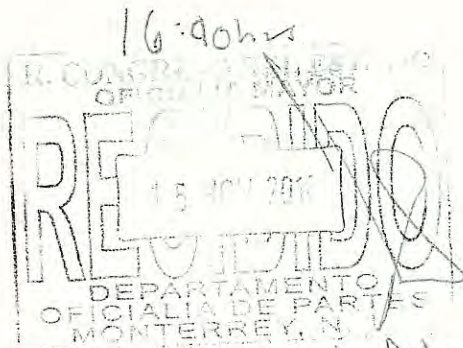 16:40hrs
OFICIALIA MAYOR
RECIBIDO
15 NOV 201
DEPARTAMENTO
OFICIALIA DE PARTES
MONTERREY, N.